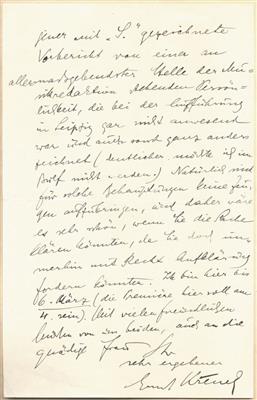 jener mit „S." gezeichnete
Vorbericht von einer an
allermassgebendster Stelle der Mu-
sikredaktion stehenden Persön-
lichkeit, die bei der Aufführung
in Leipzig gar nicht anwesend
war und auch sonst ganz anders
zeichnet (deutlicher möchte ich im
Brief nicht werden). Natürlich wird
für solche Behauptungen keine Zeu-
gen aufzubringen, und daher wäre
es sehr schön, wenn Sie die Sache
klären könnten, da Sie doch im-
merhin mit Recht Aufklärung
fordern könnten. Ich bin hier bis
6. März (die Première hier soll am
4. sein). Mit vielen freundlichen
Grüssen von uns beiden, auch an die
gnädige Frau Ihr
sehr ergebener
Ernst Krenek